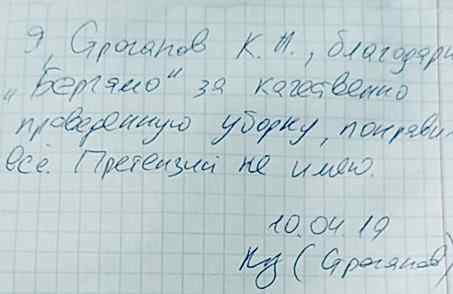 Я, Строганов К.Н., благодарю
„Бергамо" за качественно
проверенную уборку, понрави
всё. Претензий не имею.
10.04 19
(Строганов)